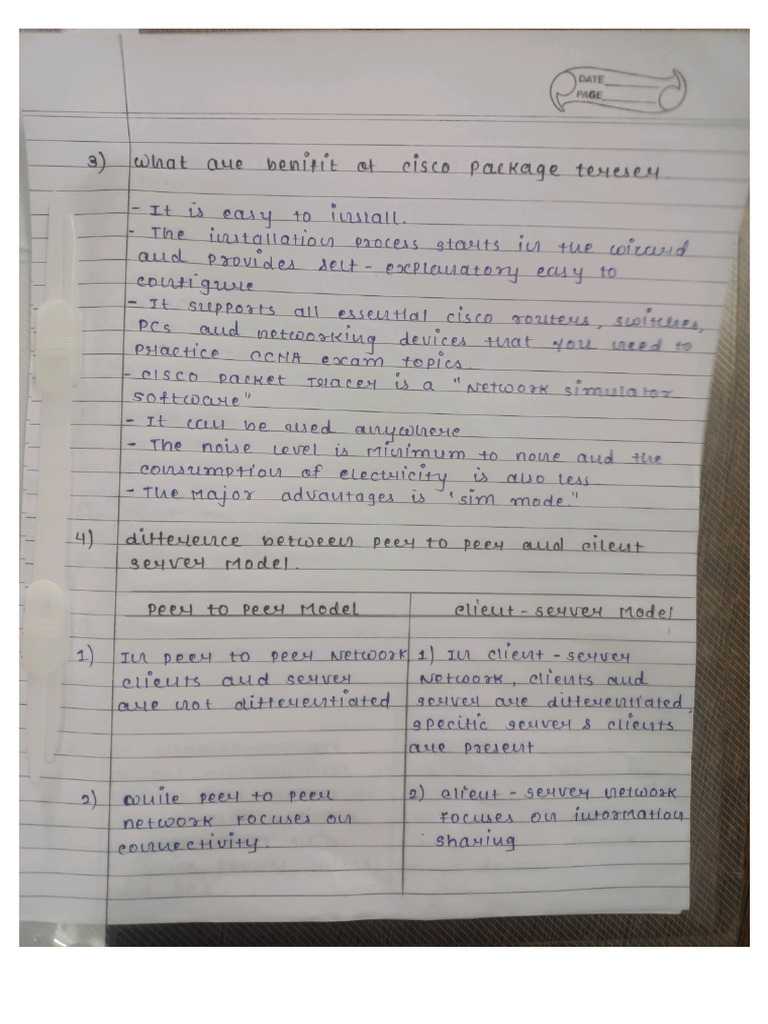 DATE
PAGE
3) What are benifit of cisco package tereser
- It is easy to install.
- The installation process starts in the wizard
and provides self - explanatory easy to
configure
- It supports all essential cisco routers, switches,
PCs and networking devices that you need to
practice CCNA exam topics.
- cisco packet Tracer is a "Network simulator
software"
- It can be used anywhere
- The noise level is minimum to none and the
consumption of electricity is also less
- The major advantages is 'sim mode."
4) difference between peer to peer and cilent
server model.
peer to peer Model
client - server Model
1) In peer to peer Network
clients and server
are not differentiated
1) In client - server
Network, clients and
server are differentiated,
specific server & clients
are present
2) while peer to peer
network focuses on
connectivity.
2) client - server network
focuses on information
sharing